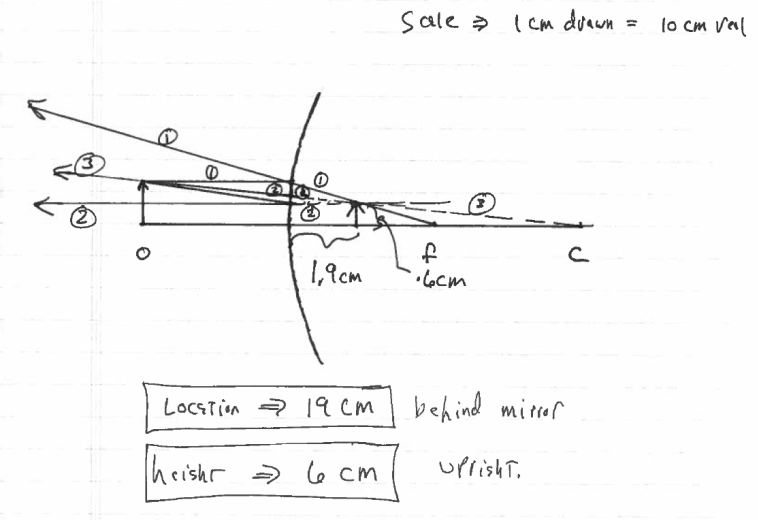 Scale ⇒ 1 cm drawn = 10 cm real
①
③ ① ①
② ②
② ② ③
O f C
1,9cm .6cm
Location ⇒ 19 cm behind mirror
height ⇒ 6 cm upright.